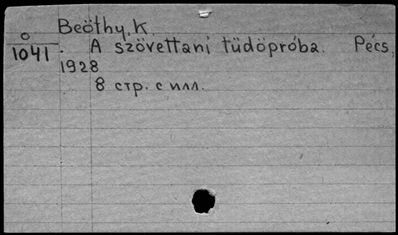 Beöthy, K.
O
1041. A szövettani tüdöpróba. Pécs,
1928
8 стр. с илл.